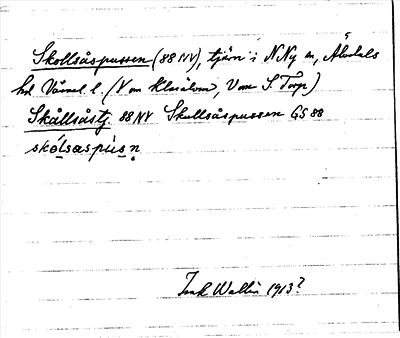 Skollsåspussen (88 NV), tjärn i N Ny sn, Älvdals
hd Värml l. (V om Klarälven, V om S. Torp)
Skållsåstj. 88 NV Skullsåspussen GS 88
skólsaspùsn
Isak Wallin 1913?